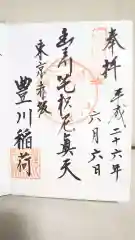 奉拝
平成二十六年
六月六日
豊川吒枳尼真天
東京赤坂
豊川稲荷